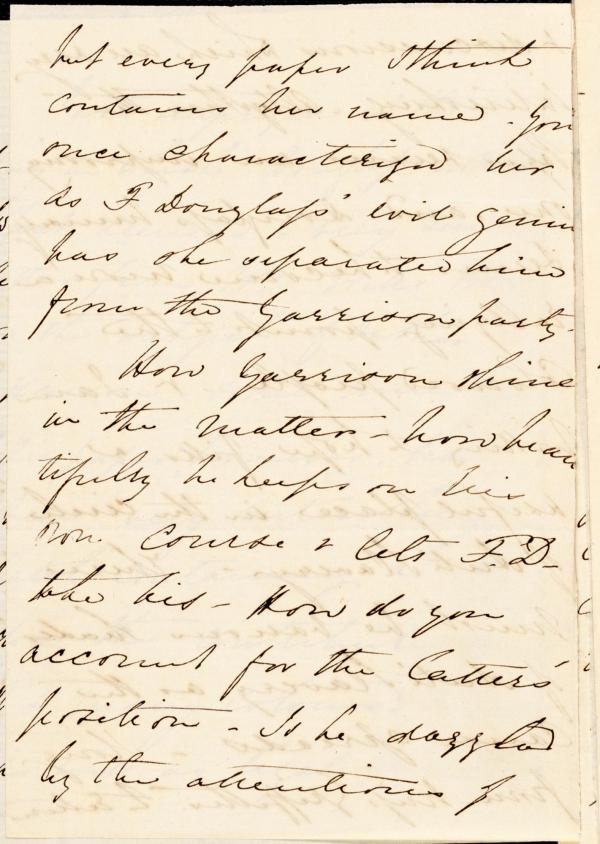 but every paper I think
contains her name - you
once characterized her
as F Douglass' evil geniu
has she separated him
from the Garrison party.
How Garrison shine
in the matter - how beau
tifully he keeps on his
own course & lets F.D-
take his - How do you
account for the latters'
position - Is he dazzled
by the attentions of